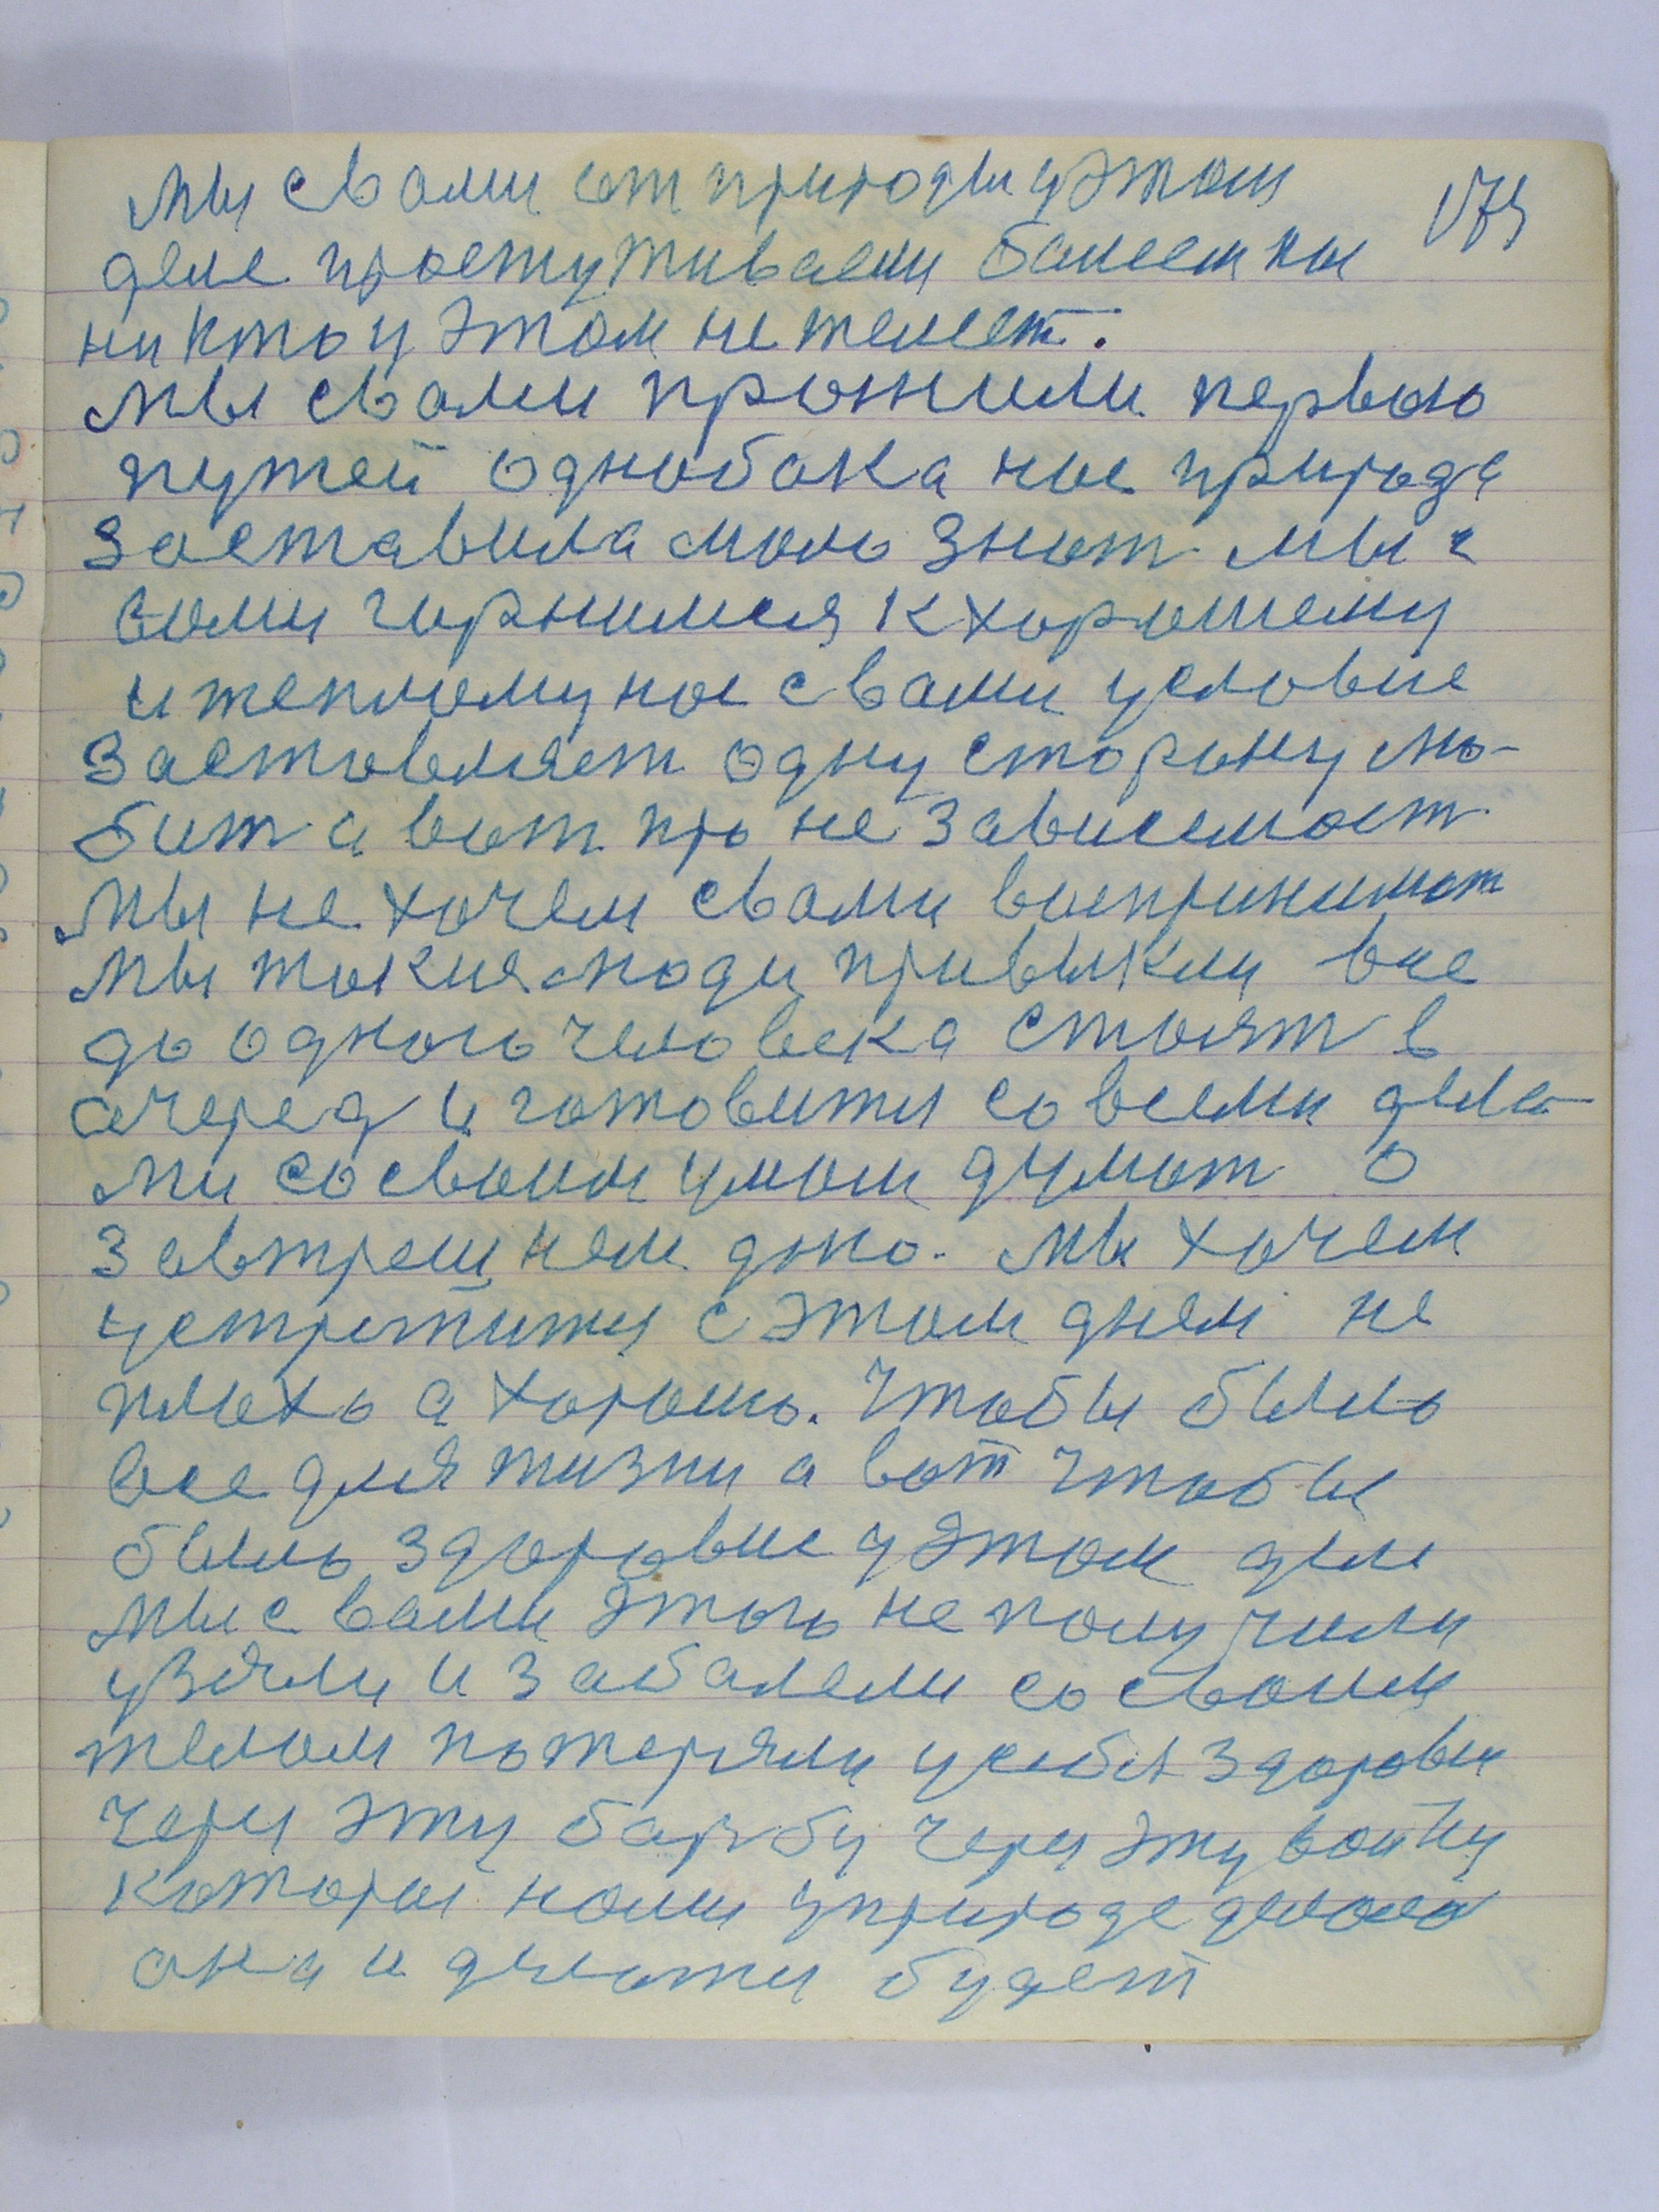 мы свами от природы уэтом
деле простуживаемся болеем нас
никто у этом не жалеет.
мы свами прожили первою
путей однобока нас природа
заставила мало знат мы с
вами горнимся к хорошему
и теплому нас свами условие
заставляет одну сторону лю-
бит а вот про не зависемост
мы не хочем свами воспринимат
мы такия люди привыкли все
до одного человека стоят в
очеред и готовится со всеми дела-
ми со своим умом думат о
завтрешнем дню. мы хочем
устретится с этом днем не
плохо а хорошо. Чтобы было
все для жизни а вот чтобы
было здоровие уэтом деле
мы с вами этого не получили
узяли и заболели со своим
телом потеряли усебя здоровие
через эту борбу через эту войну
которая нами уприроде делалас
она и делатся будет